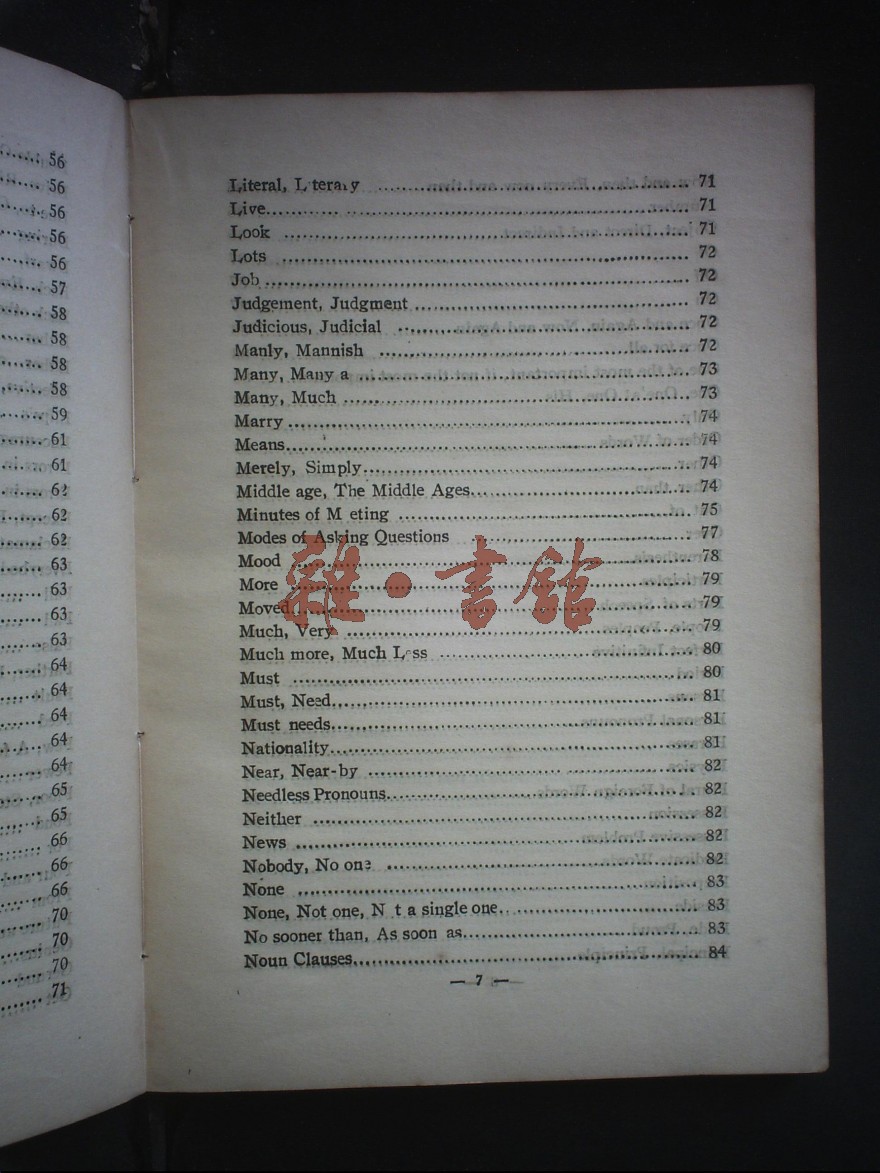 56
56
56
56
56
57
58
58
58
58
59
61
61
62
62
62
63
63
63
63
64
64
64
64
64
65
65
66
66
66
70
70
70
71
Literal, L terary 71
Live 71
Look 71
Lots 72
Job 72
Judgement, Judgment 72
Judicious, Judicial 72
Manly, Mannish 72
Many, Many a 73
Many, Much 73
Marry 74
Means 74
Merely, Simply 74
Middle age, The Middle Ages 74
Minutes of M eting 75
Modes of Asking Questions 77
Mood 78
More 79
Moved 79
Much, Very 79
Much more, Much Less 80
Must 80
Must, Need 81
Must needs 81
Nationality 81
Near, Near-by 82
Needless Pronouns 82
Neither 82
News 82
Nobody, No one 82
None 83
None, Not one, N t a single one 83
No sooner than, As soon as 83
Noun Clauses 84
— 7 —
雜·書館